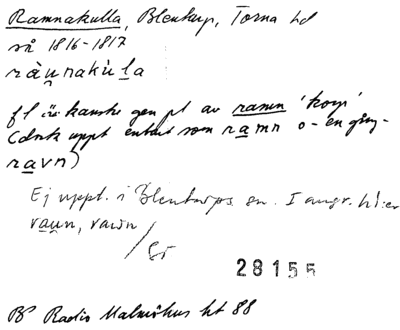 Ramnakulla, Blentarp, Torna hd
så 1816-1817
ràu̯nakùl̲a
fl är kanske gen pl av ramn 'korp'
(dock uppt enbart som ramn o- en gång-
ravn)
Ej uppt. i Blentarps sn. I angr. hder
raun, rawn
28155
Radio Malmöhus ht 88